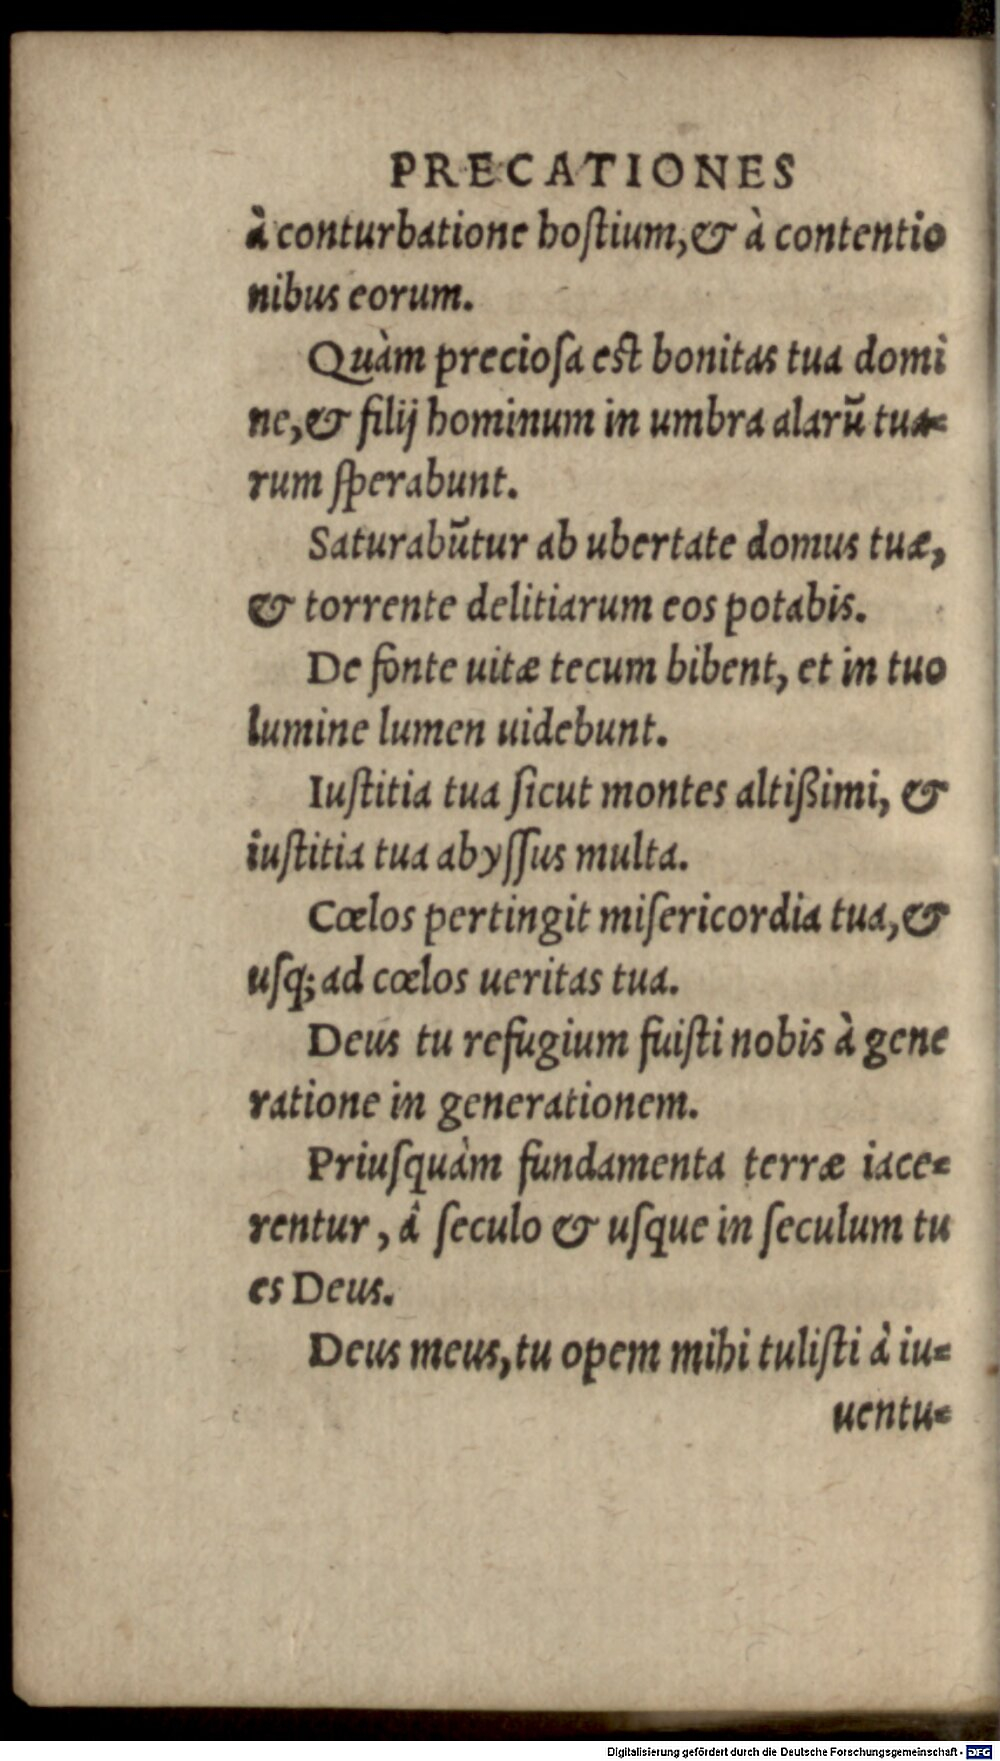 PRECATIONES
à conturbatione hoſtium,& à contentio
nibus eorum.
Quàm precioſa eſt bonitas tua domi
ne,& filij hominum in umbra alarũ tua⸗
rum ſperabunt.
Saturabũtur ab ubertate domus tuæ,
& torrente delitiarum eos potabis.
De fonte uitæ tecum bibent, et in tuo
lumine lumen uidebunt.
Iuſtitia tua ſicut montes altißimi, &
iuſtitia tua abyſſus multa.
Cœlos pertingit miſericordia tua,&
uſq; ad cœlos ueritas tua.
Deus tu refugium fuiſti nobis à gene
ratione in generationem.
Priuſquàm fundamenta terræ iace⸗
rentur, à ſeculo & uſque in ſeculum tu
es Deus.
Deus meus,tu opem mihi tuliſti à iu⸗
uentu⸗
Digitalisierung gefördert durch die Deutsche Forschungsgemeinschaft - DFG